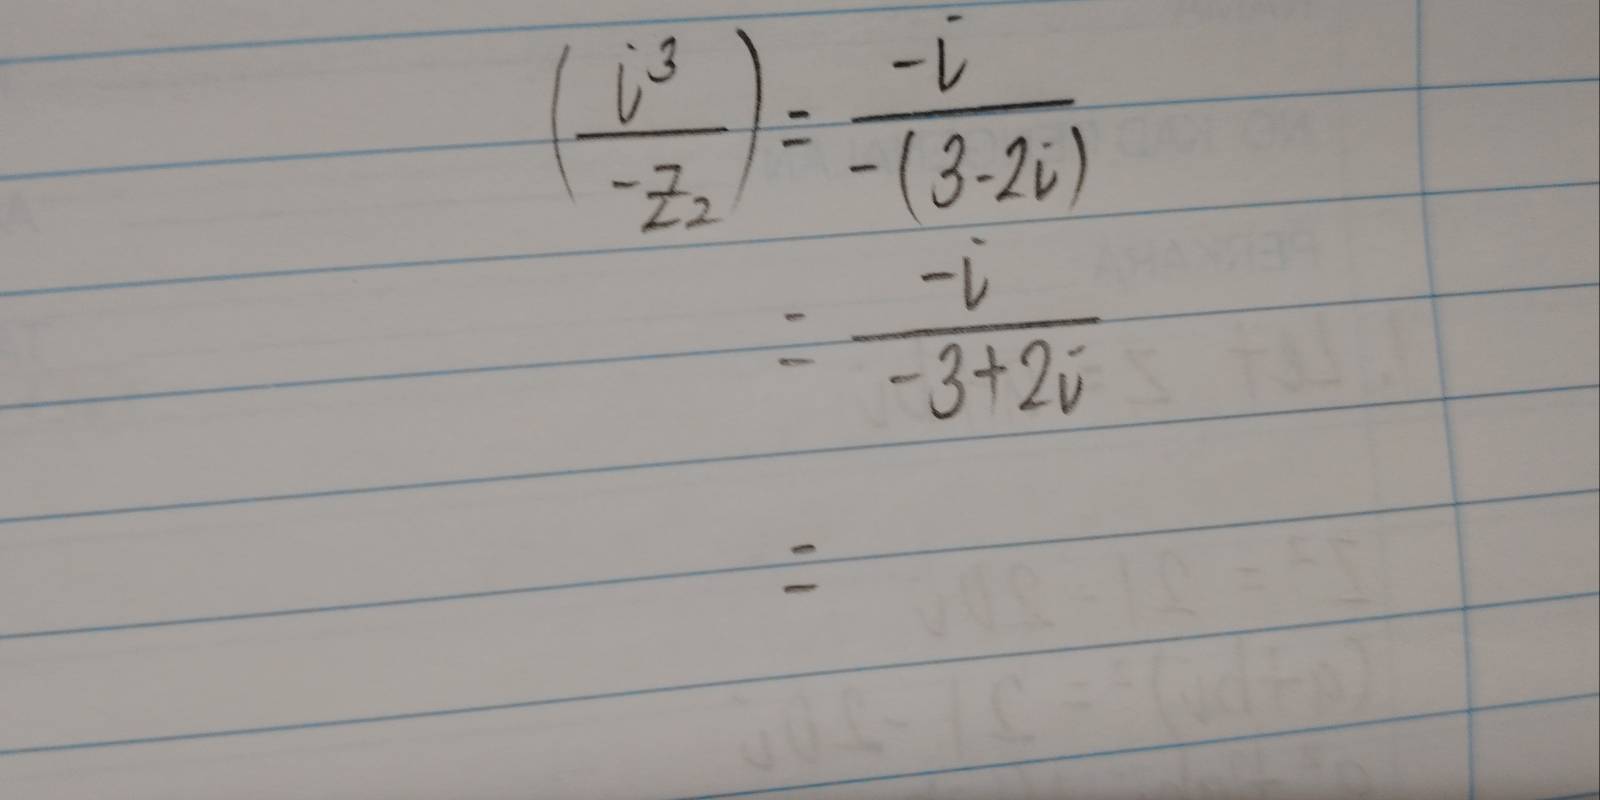 (i³ / -z₂) = -i / -(3-2i)
= -i / -3+2i
=